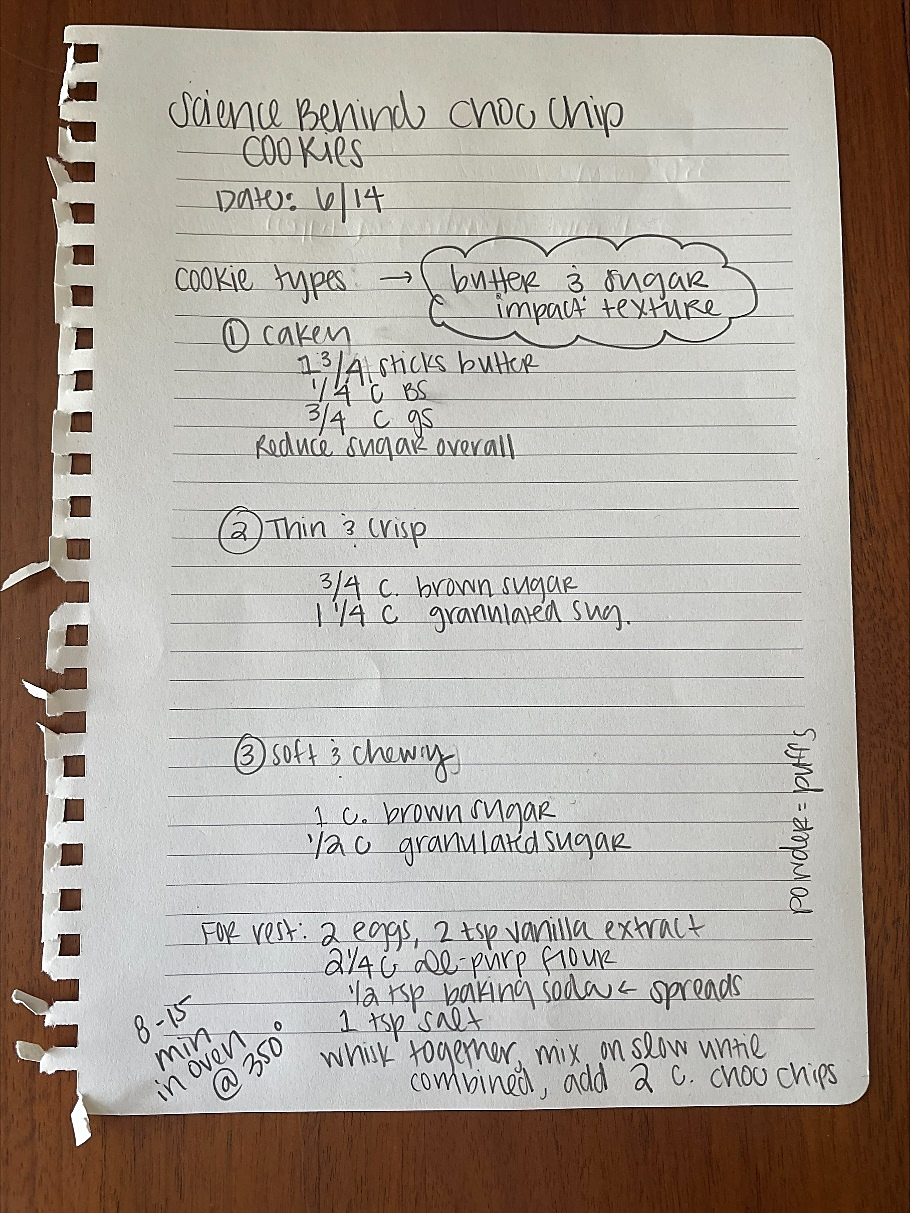 Science Behind Choc Chip
Cookies
Date: 6/14
Cookie types → butter & sugar
impact texture
① cakey
1 3/4 sticks butter
1/4 c BS
3/4 c gs
Reduce sugar overall
② Thin & Crisp
3/4 c. brown sugar
1 1/4 c granulated sug.
③ soft & chewy
1 c. brown sugar
1/2 c granulated sugar
powder = puffs
For rest: 2 eggs, 2 tsp vanilla extract
2 1/4 c all-purp flour
1/2 tsp baking soda ← spreads
1 tsp salt
whisk together, mix on slow until
combined, add 2 c. choc chips
8-15
min
in oven
@ 350°